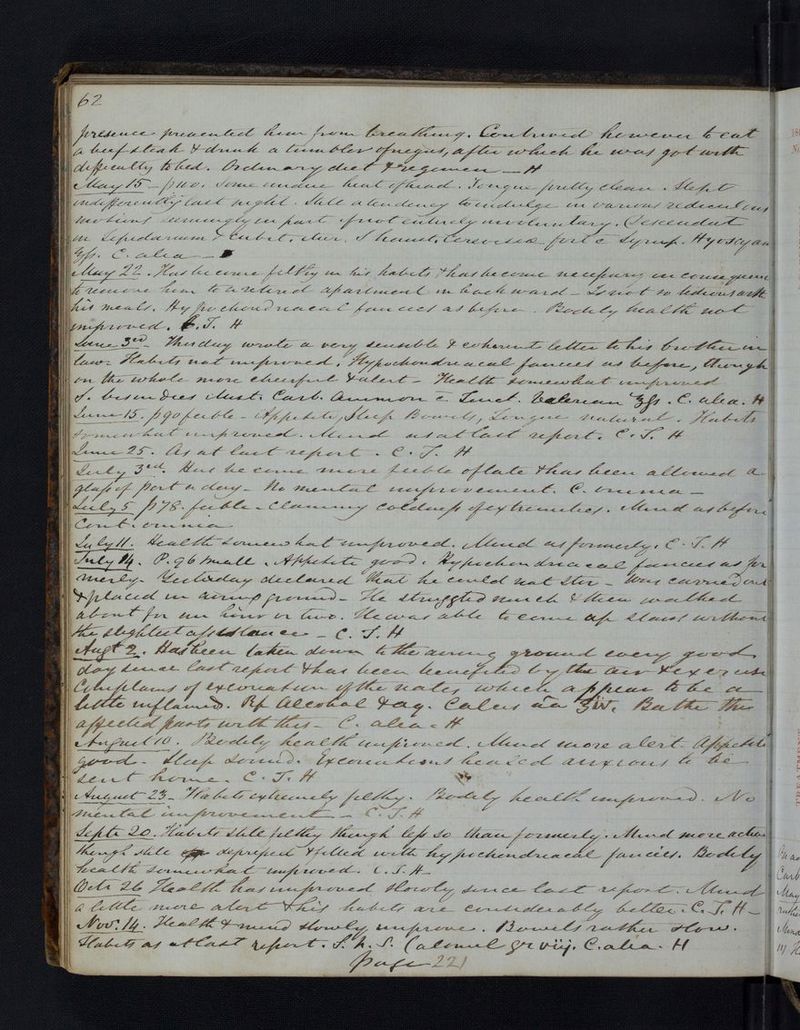 62
presence prevented him from breathing. Contrived however to eat
a beef steak & drink a tumbler of negus, after which he was got with
difficulty to bed. Ordinary diet & regimen — H
May 15 – some undue heat of head. Tongue pretty clean. Slept
indifferently last night. Still a tendency to indulge in various rediculous
motions seemingly in part if not entirely involuntary.
Hyoscyam
C. alia
May 22. Has become filthy in his habits & has become necessary in consequence
to remove him to a retired apartment in back ward – Is not so tedious with
his meals. Hypochondriacal fancies as before. Bodily health not
improved. C.T. H
June 3rd – Thursday wrote a very sensible & coherent letter to his brother in
law. Habits not improved. Hypochondriacal fancies as before, though
on the whole more cheerful & alert – Health somewhat improved
Mist. Carb. Ammon c Tinct. Valerian ʒfs. C. alia. H
June 15. p 90 feeble – Appetite, Sleep Bowels, Tongue natural. Habits
somewhat improved. Mind as at last report. C.T. H
June 25. As at last report. C.T. H
July 3rd. Has become more feeble of late & has been allowed a
glass of port a day – No mental improvement. C. omnia –
July 5 p 78. feeble – Clammy coldness of extremities. Mind as before
Cont. omnia
July 11. Health somewhat improved. Mind as formerly. C.T. H
July 14. P. 96 small. Appetite good. Hypochondriacal fancies as for
merly. Yesterday declared that he could not stir – was carried out
& placed in airing ground – He struggled much & then walked
about for an hour or two. He was able to come up stairs without
the slightest assistance – C.T. H
Augt 2. Has been taken down to the airing ground every good
day since last report & has been benefited by the air & exercise
Complains of excoriation of the nates, which appear to be a
little inflamed. Rf Alcohol & aq. Calcis āā ʒiv. Bathe the
affected parts with this – C. alia. H
August 10. Bodily health improved. Mind more alert. Appetite
good – Sleep sound. Excoriations healed anxious to be
sent home. C.T. H
August 23 – Habits extremely filthy. Bodily health improved. No
mental improvement – C.T. H
Septr 20. Habits still filthy though less so than formerly. Mind more active
though still depressed & filled with hypochondriacal fancies. Bodily
health somewhat improved. C.T. H –
Octr 26 Health has improved slowly since last report. Mind
a little more alert & his habits are considerably better. C.T. H –
Novr. 14. Health & mind slowly improve. Bowels rather slow.
Habits as at last report. Calomel gr viij. C. alia. H
page 221